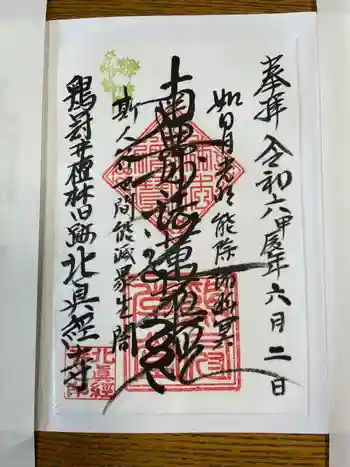 奉拝 令和六甲辰年六月二日
如日月光明能除諸幽冥
南無妙法蓮華経
斯人行世間能滅衆生闇
鶏冠井檀林旧跡北真経寺
北眞經寺